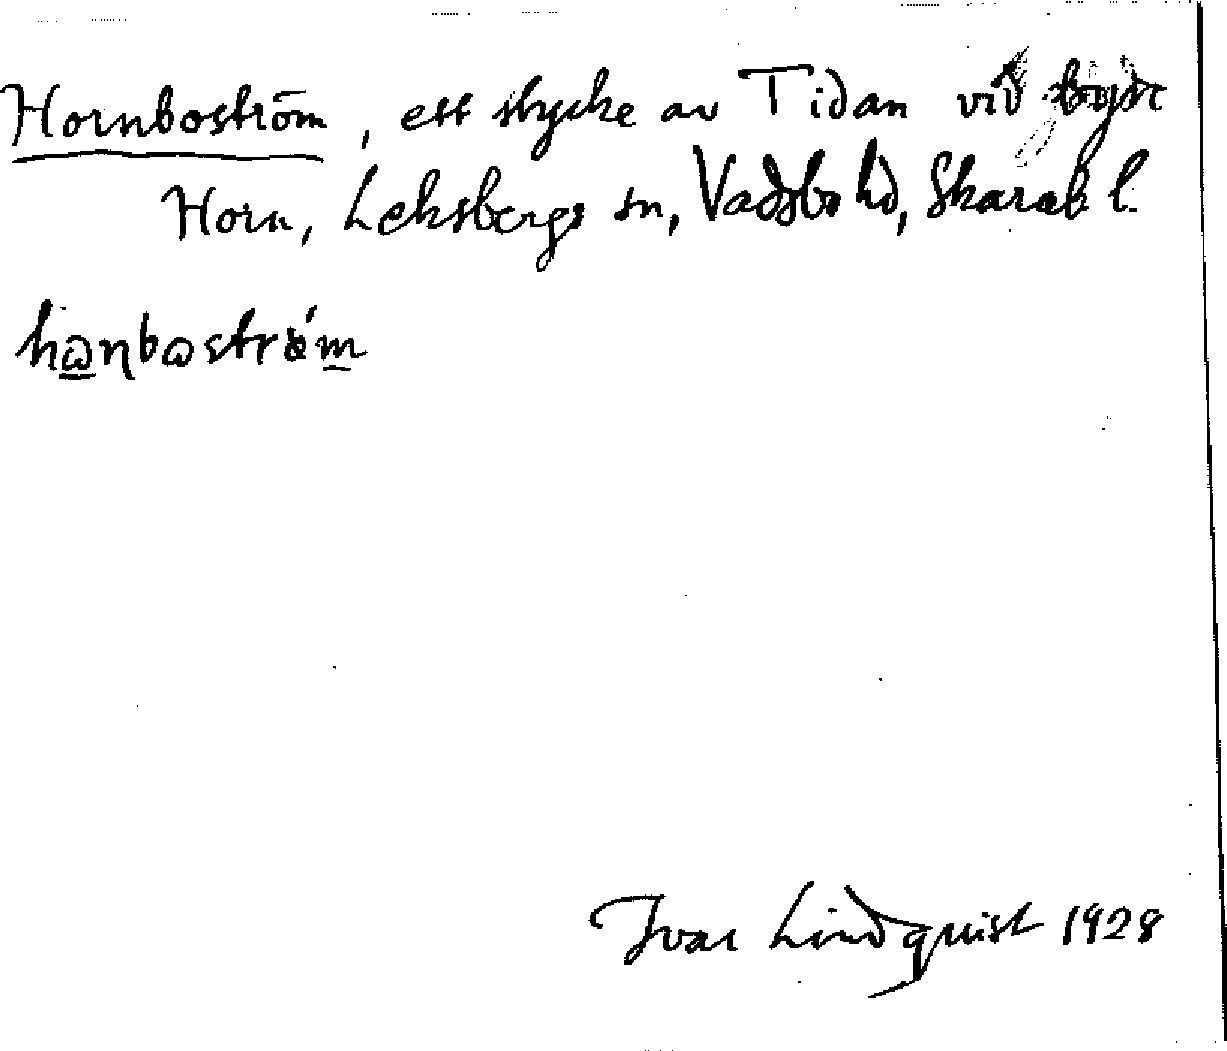 Hornboström, ett stycke av Tidan vid
Horn, Leksbergs sn, Vadsbo hd, Skarab l.
hɷnboström
Ivar Lindquist 1928